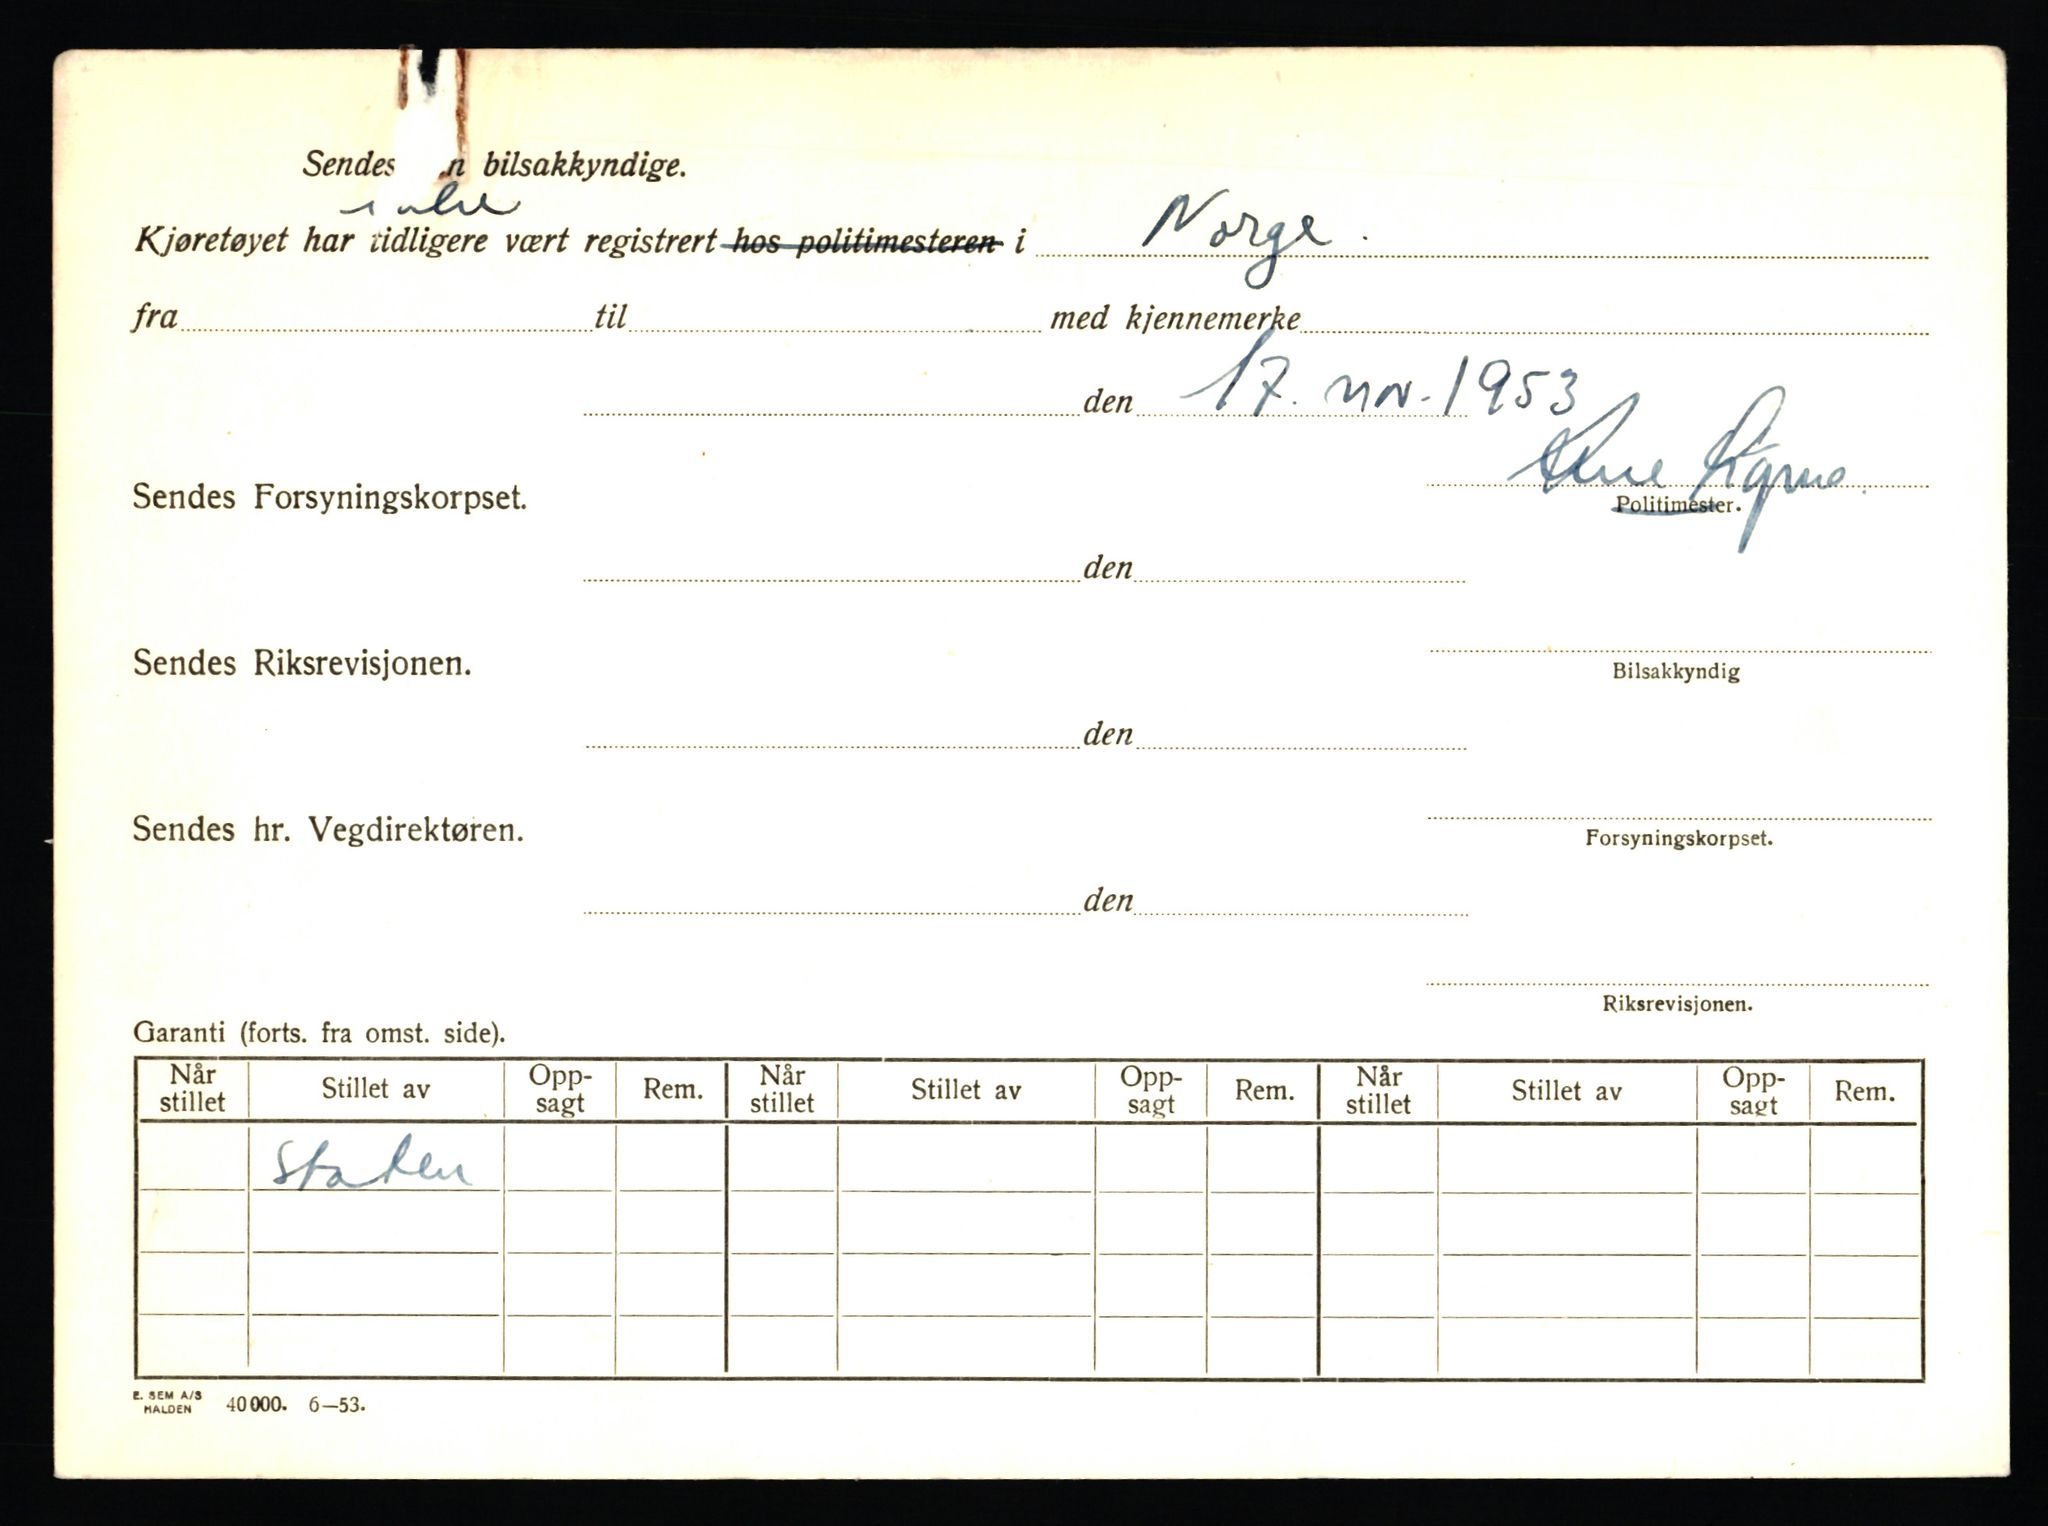 Sendes bilsakkyndige.
ikke
Kjøretøyet har tidligere vært registrert hos politimesteren i Norge.
fra til med kjennemerke
den 17. nov. 1953
Sendes Forsyningskorpset.
Politimester.
den
Sendes Riksrevisjonen.
Bilsakkyndig
den
Sendes hr. Vegdirektøren.
Forsyningskorpset.
den
Riksrevisjonen.
Garanti (forts. fra omst. side).
Når stillet Stillet av Opp-sagt Rem. Når stillet Stillet av Opp-sagt Rem. Når stillet Stillet av Opp-sagt Rem.
Staten
E. SEM A/S
HALDEN 40000. 6—53.